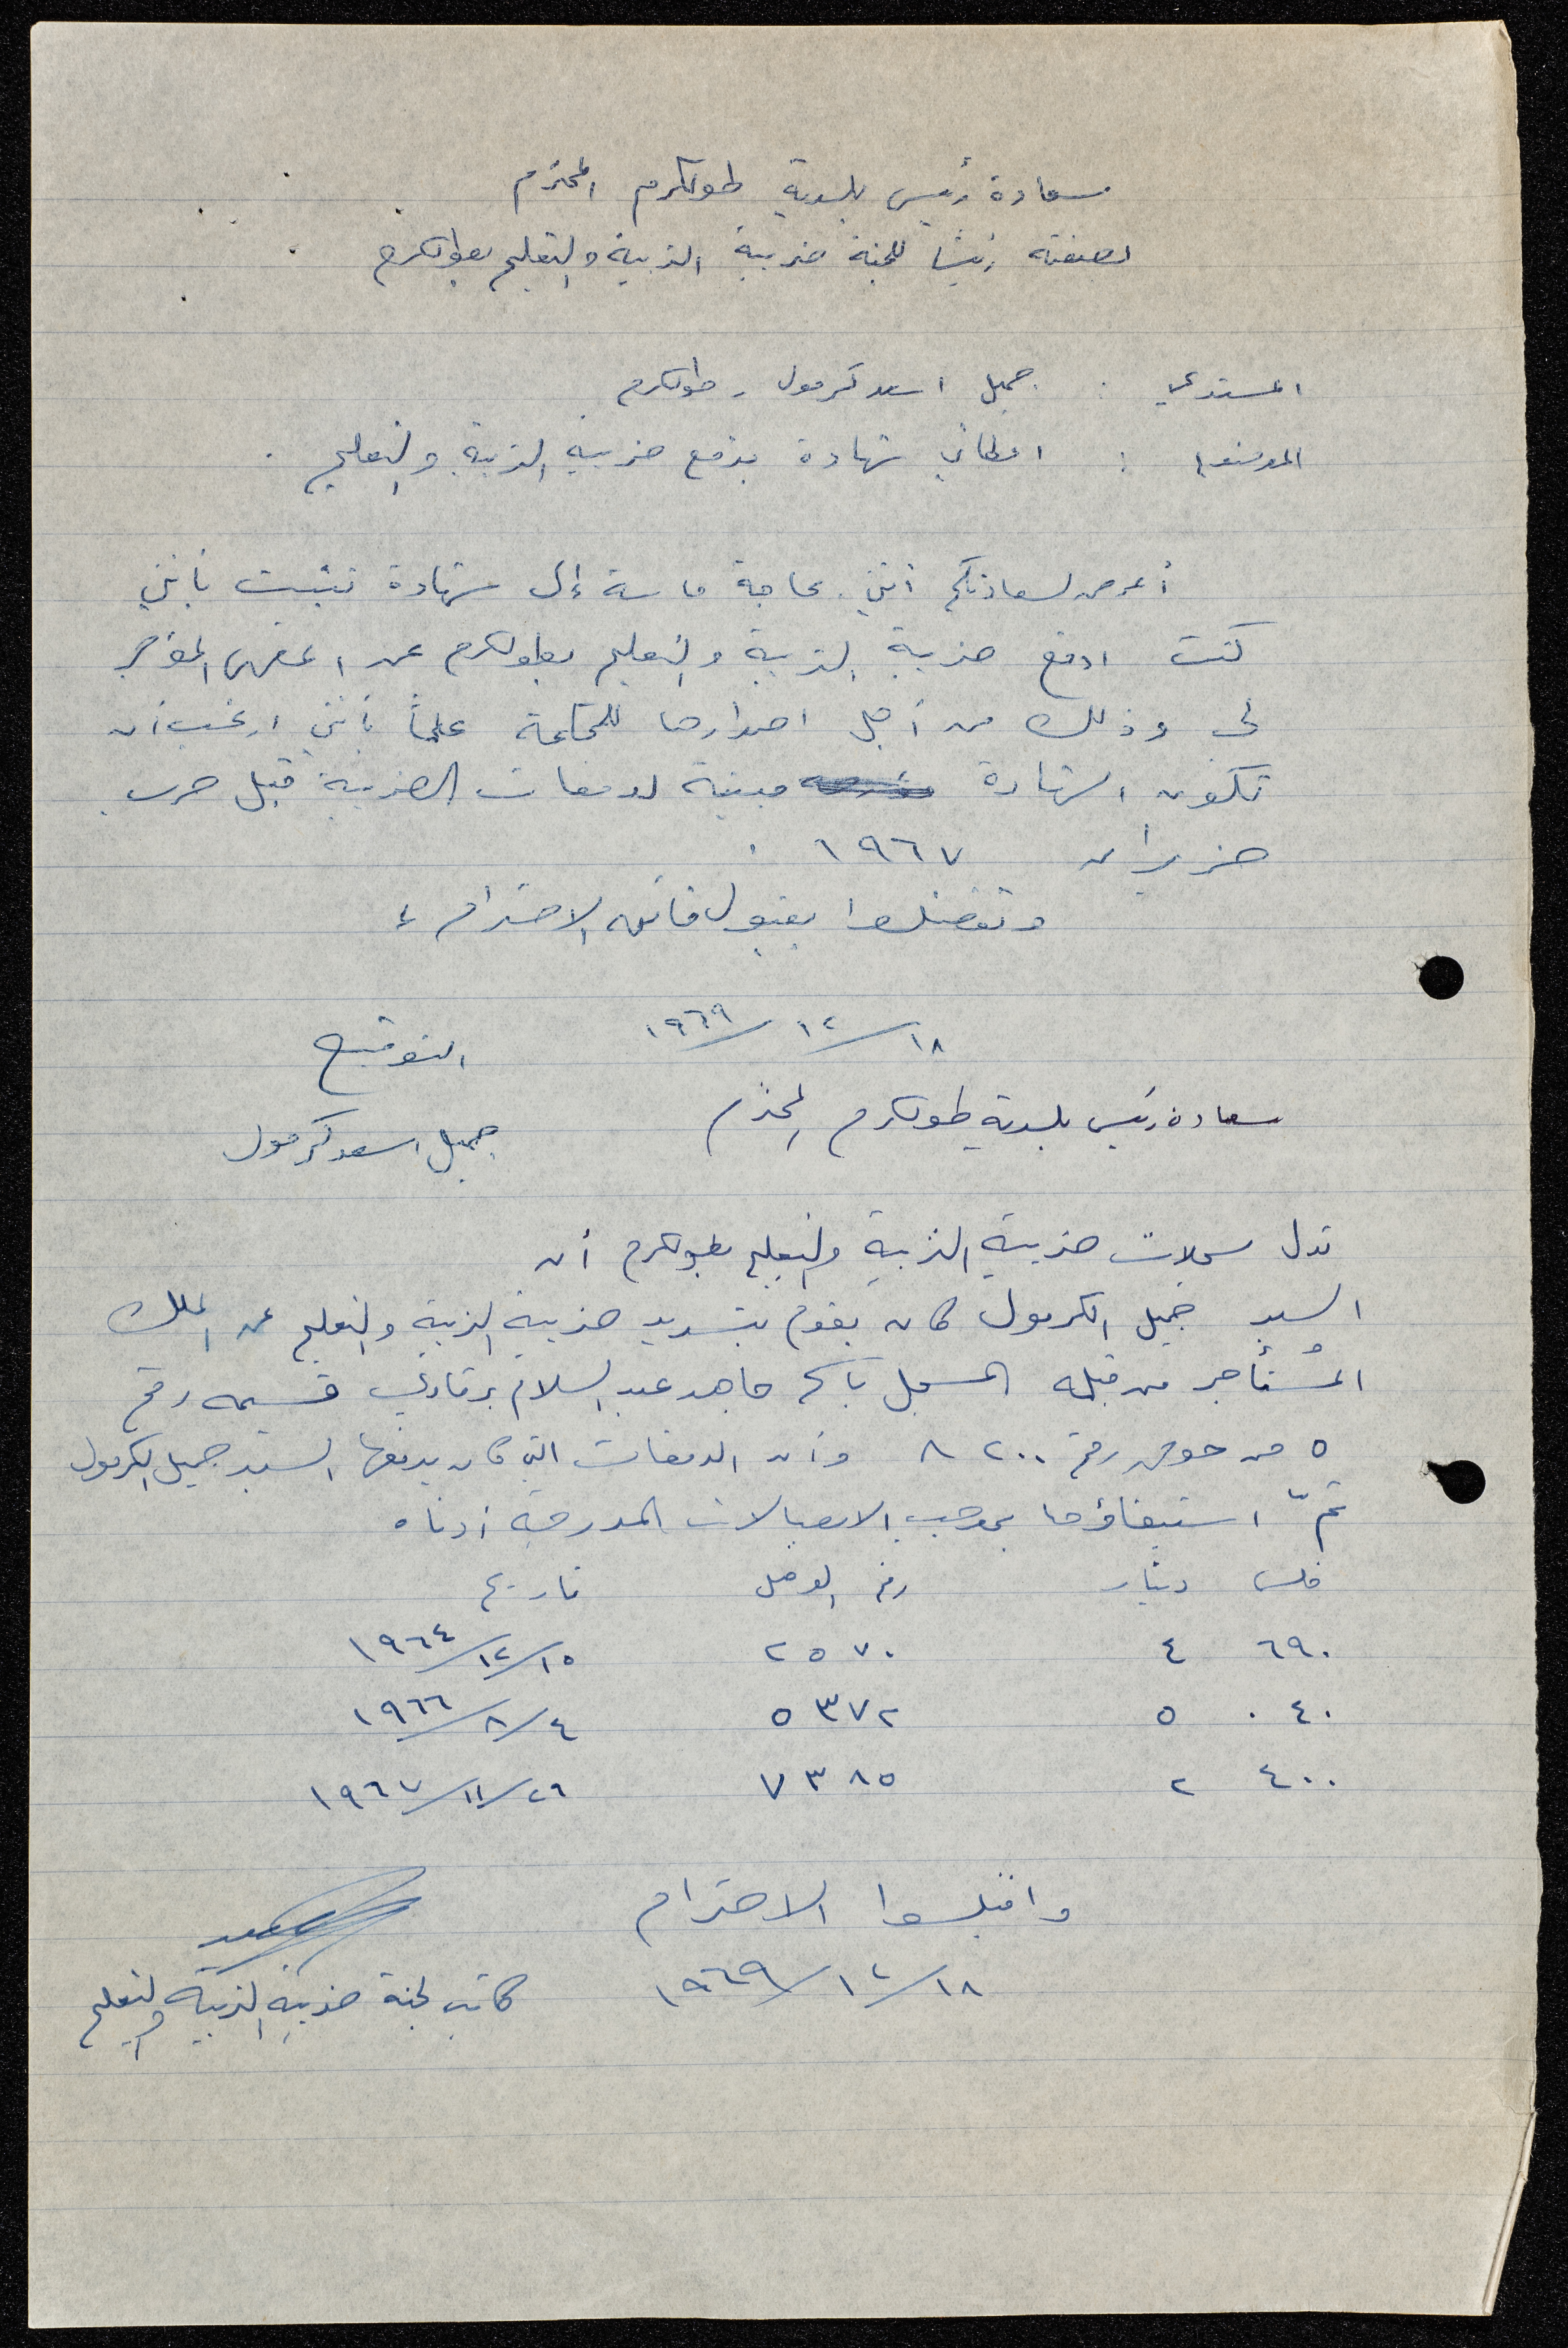 سعادة رئيس بلدية طولكرم المحترم
بصفته رئيساً للجنة ضريبة التربية والتعليم بطولكرم
المستدعي : جميل اسعد كرمول - طولكرم
الموضوع : اعطائي شهادة بدفع ضريبة التربية والتعليم .
أعرض لسعادتكم انني بحاجة ماسة إلى شهادة تثبت بأنني
كنت ادفع ضريبة التربية والتعليم بطولكرم عن المقهى المؤجر
لي وذلك من أجل اصدارها للمحكمة علماً بأنني ارغب أن
تكون الشهادة مبنية لدفعات الضريبة قبل حرب
حزيران ١٩٦٧ .
وتفضلوا بقبول فائق الاحترام ،
١٨/١٢/١٩٦٩ التوقيع
سعادة رئيس بلدية طولكرم المحترم
جميل اسعد كرمول
تدل سجلات ضريبة التربية والتعليم بطولكرم أن
السيد جميل الكرمول كان يقوم بتسديد ضريبة التربية والتعليم عن الملك
المُستأجر من قبله المسجل باسم جاهد عبد السلام برقاوي قسيمه رقم
٥ من حوض رقم ٨٢٠٠ وأن الدفعات التي كان يدفعها السيد جميل الكرمول
تمّ استيفاؤها بموجب الايصالات المدرجة أدناه
فلس دينار رقم الوصل تاريخ
٦٩٠ ٤ ٢٥٧٠ ١٥/١٢/١٩٦٤
٠٤٠ ٥ ٥٣٧٢ ٤/٨/١٩٦٦
٤٠٠ ٢ ٧٣٨٥ ٢٦/١١/١٩٦٧
واقبلوا الاحترام
١٨/١٢/١٩٦٩
كاتب لجنة ضريبة التربية والتعليم